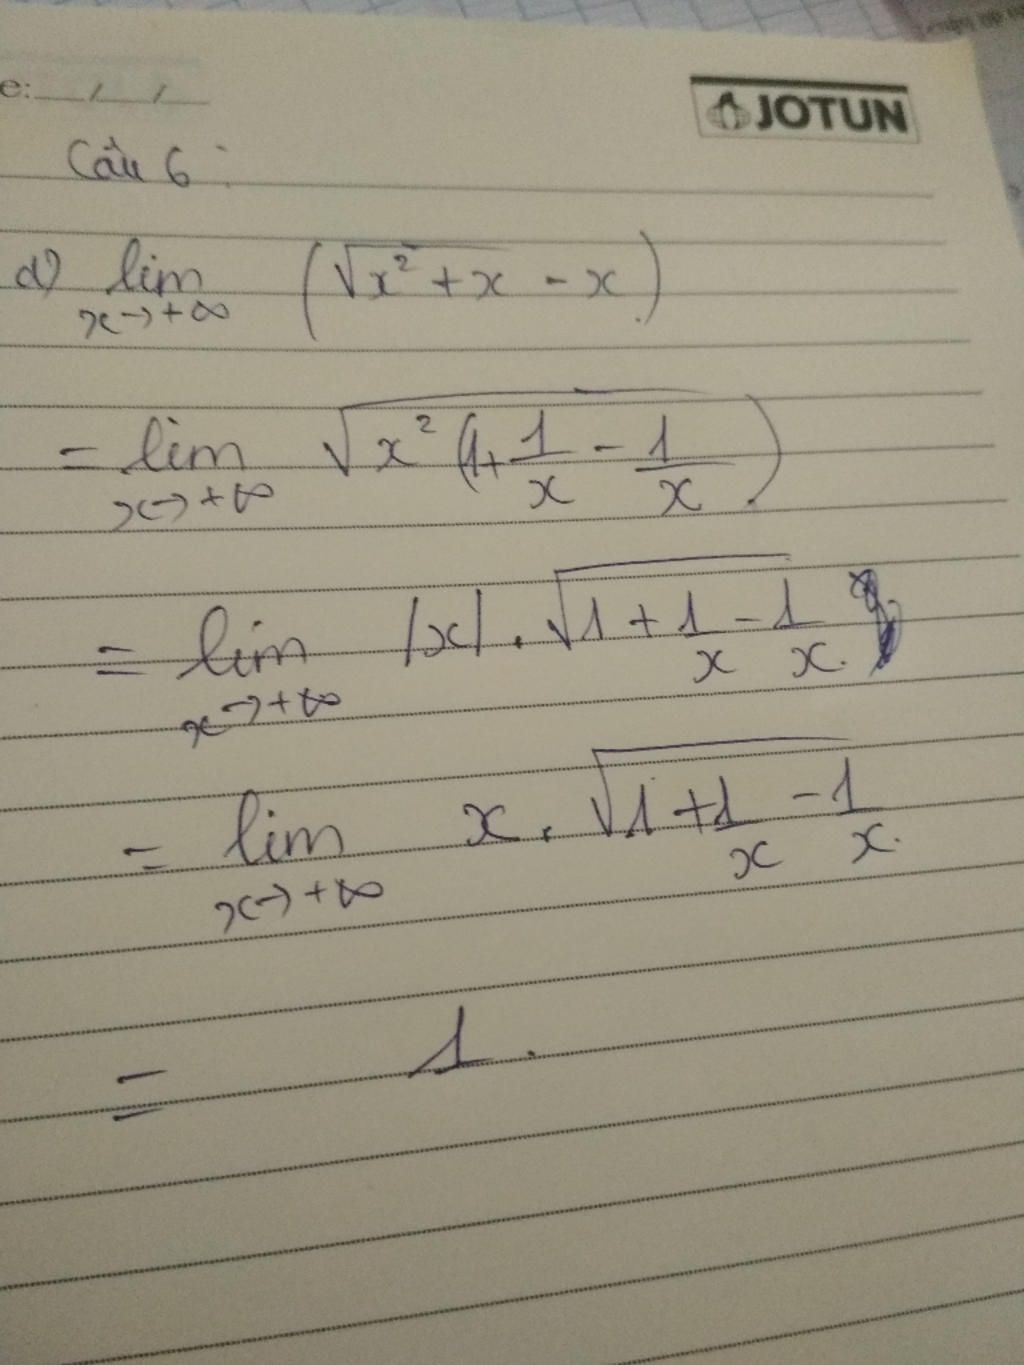 e: / /
JOTUN
Câu 6:
d) lim (√x² + x - x)
x→+∞
= lim √x² (1+ 1/x - 1/x)
x→+∞
= lim |x| . √1 + 1/x - 1/x.
x→+∞
= lim x . √1 + 1/x - 1/x.
x→+∞
= 1.